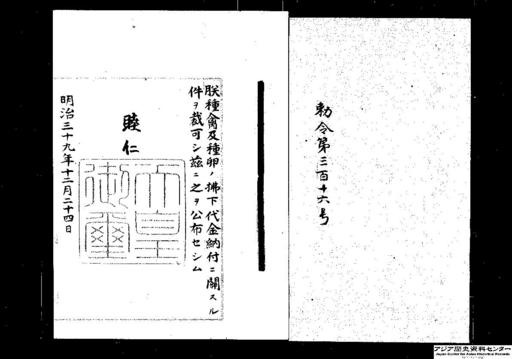 勅令第三百十六号
朕種禽及種卵ノ拂下代金納付ニ關スル
件ヲ裁可シ茲ニ之ヲ公布セシム
睦仁
天皇
御璽
明治三十九年十二月二十四日
アジア歴史資料センター
Japan Center for Asian Historical Records